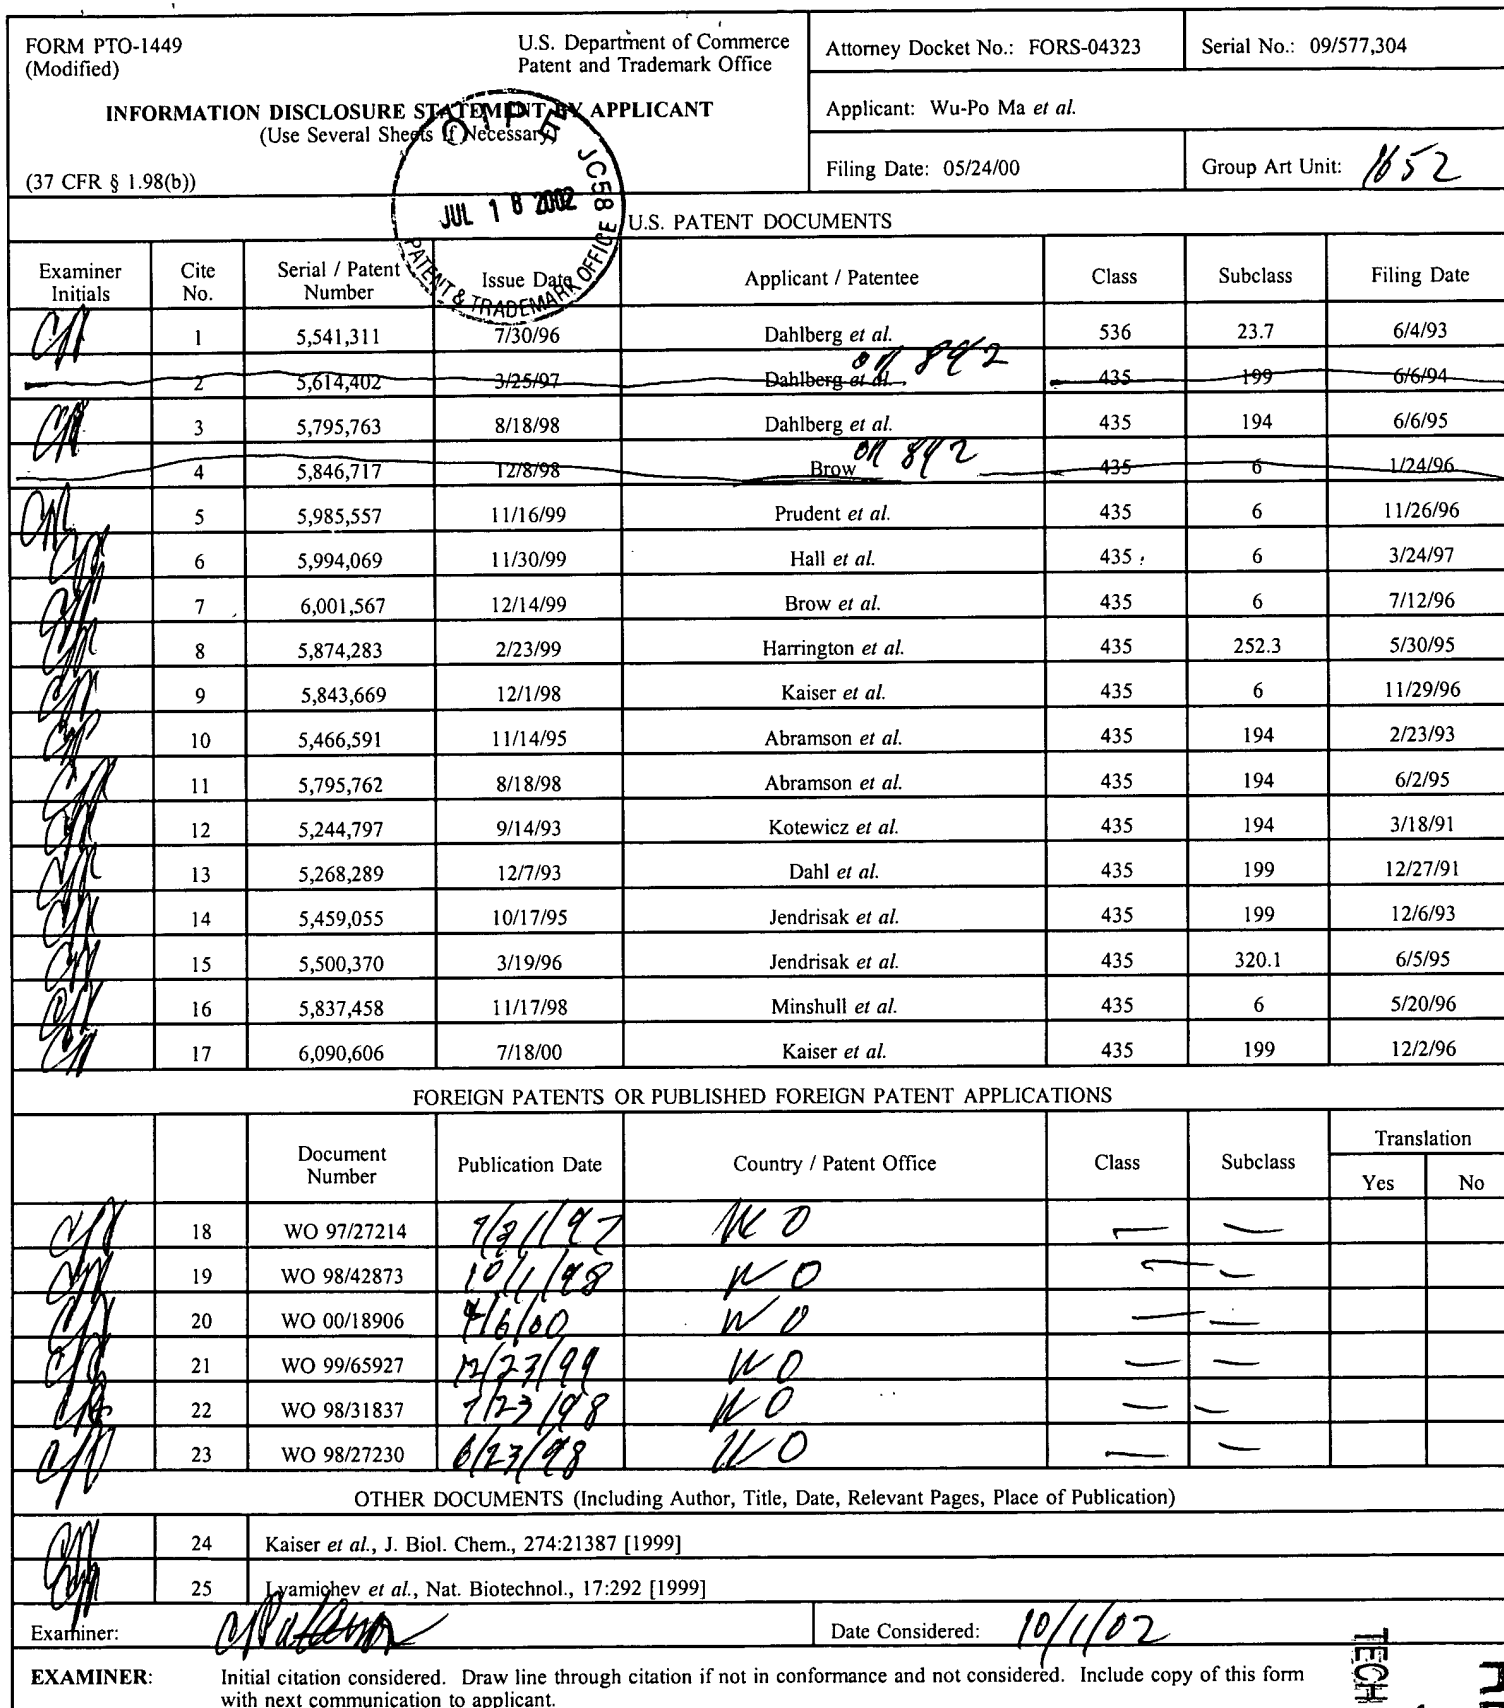 FORM PTO-1449
(Modified)
U.S. Department of Commerce
Patent and Trademark Office
Attorney Docket No.: FORS-04323
Serial No.: 09/577,304
INFORMATION DISCLOSURE STATEMENT BY APPLICANT
(Use Several Sheets If Necessary)
Applicant: Wu-Po Ma et al.
(37 CFR § 1.98(b))
Filing Date: 05/24/00
Group Art Unit: 1652
OIPE JC58
JUL 18 2002
PATENT & TRADEMARK OFFICE
U.S. PATENT DOCUMENTS
Examiner Initials Cite No. Serial / Patent Number Issue Date Applicant / Patentee Class Subclass Filing Date
1 5,541,311 7/30/96 Dahlberg et al. 536 23.7 6/4/93
on 892
2 5,614,402 3/25/97 Dahlberg et al. 435 199 6/6/94
3 5,795,763 8/18/98 Dahlberg et al. 435 194 6/6/95
on 892
4 5,846,717 12/8/98 Brow 435 6 1/24/96
5 5,985,557 11/16/99 Prudent et al. 435 6 11/26/96
6 5,994,069 11/30/99 Hall et al. 435 6 3/24/97
7 6,001,567 12/14/99 Brow et al. 435 6 7/12/96
8 5,874,283 2/23/99 Harrington et al. 435 252.3 5/30/95
9 5,843,669 12/1/98 Kaiser et al. 435 6 11/29/96
10 5,466,591 11/14/95 Abramson et al. 435 194 2/23/93
11 5,795,762 8/18/98 Abramson et al. 435 194 6/2/95
12 5,244,797 9/14/93 Kotewicz et al. 435 194 3/18/91
13 5,268,289 12/7/93 Dahl et al. 435 199 12/27/91
14 5,459,055 10/17/95 Jendrisak et al. 435 199 12/6/93
15 5,500,370 3/19/96 Jendrisak et al. 435 320.1 6/5/95
16 5,837,458 11/17/98 Minshull et al. 435 6 5/20/96
17 6,090,606 7/18/00 Kaiser et al. 435 199 12/2/96
FOREIGN PATENTS OR PUBLISHED FOREIGN PATENT APPLICATIONS
Document Number Publication Date Country / Patent Office Class Subclass Translation
Yes No
18 WO 97/27214 WO — —
19 WO 98/42873 10/1/98 WO — —
20 WO 00/18906 4/6/00 WO — —
21 WO 99/65927 12/23/99 WO — —
22 WO 98/31837 7/23/98 WO — —
23 WO 98/27230 6/23/98 WO — —
OTHER DOCUMENTS (Including Author, Title, Date, Relevant Pages, Place of Publication)
24 Kaiser et al., J. Biol. Chem., 274:21387 [1999]
25 Lyamichev et al., Nat. Biotechnol., 17:292 [1999]
Examiner:
Date Considered: 10/1/02
EXAMINER: Initial citation considered. Draw line through citation if not in conformance and not considered. Include copy of this form
with next communication to applicant.
TECH